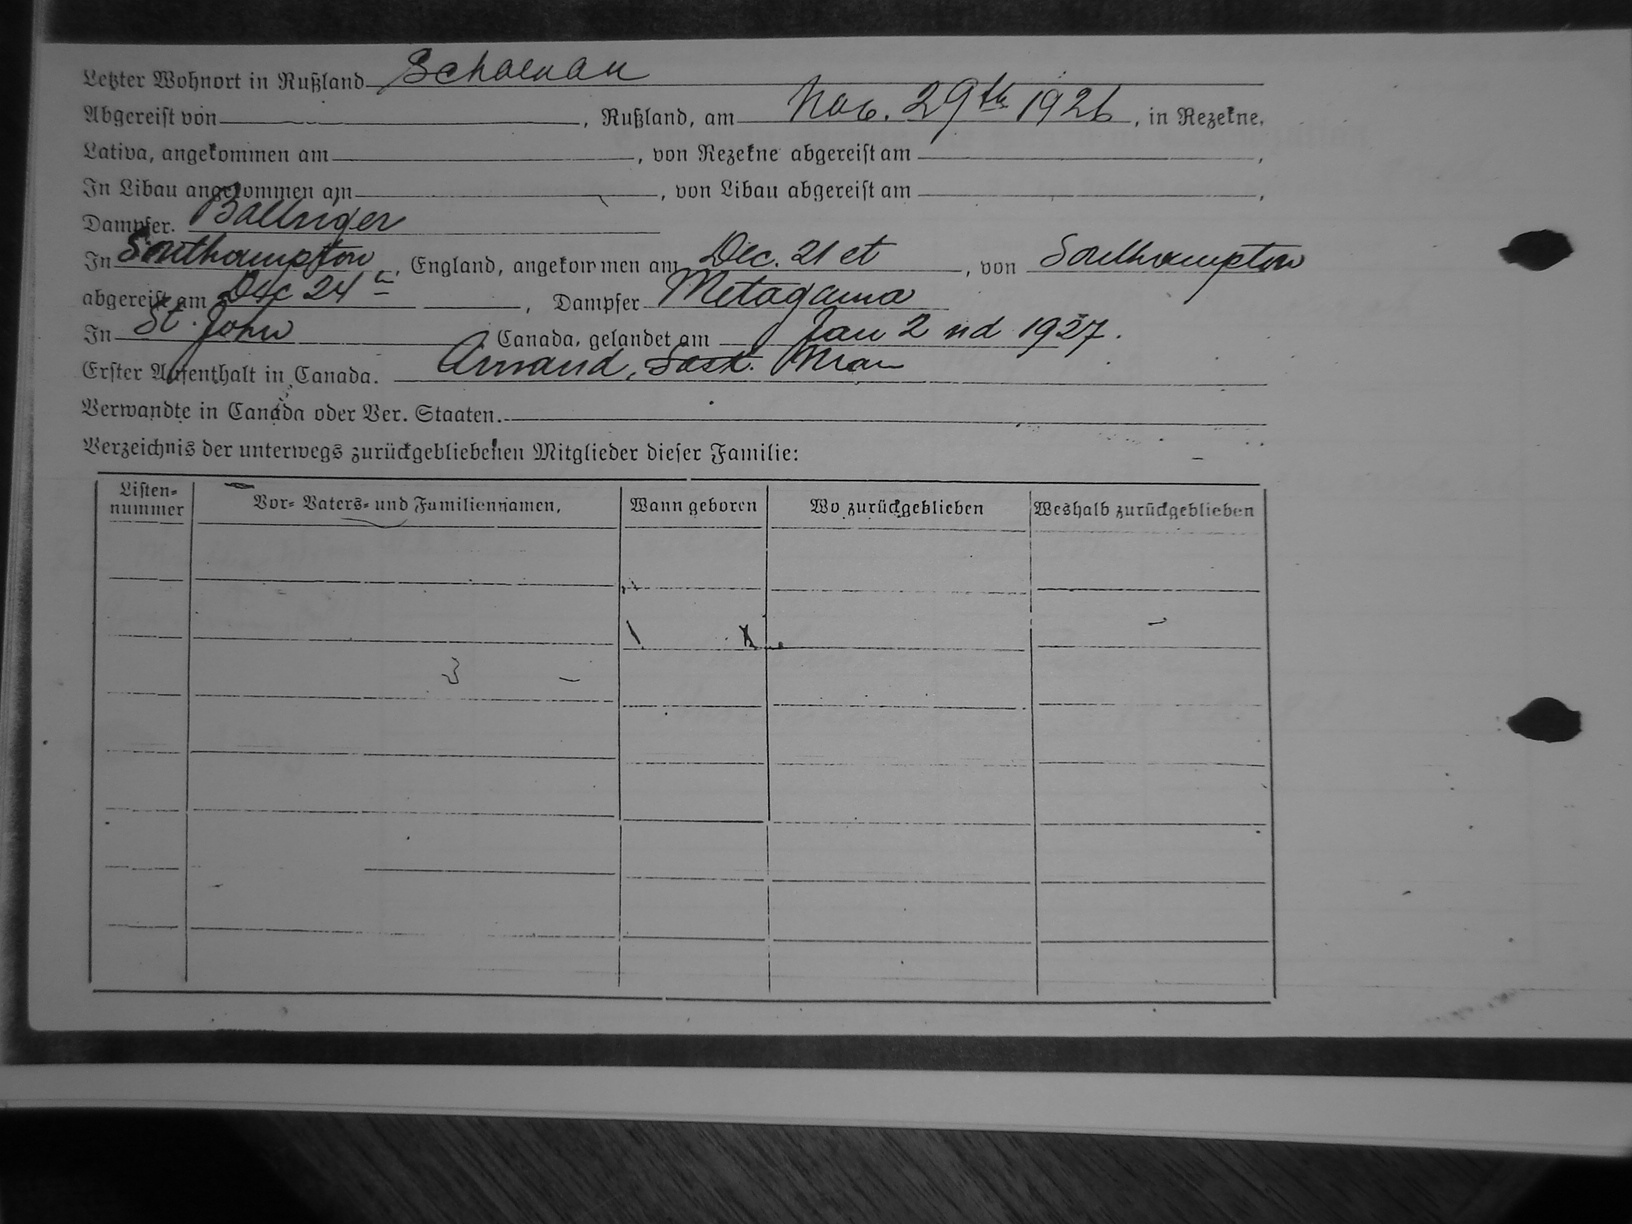 Letzter Wohnort in Rußland Schoenau
Abgereist von , Rußland, am Nov. 29th 1926, in Rezekne,
Lativa, angekommen am , von Rezekne abgereist am ,
In Libau angekommen am , von Libau abgereist am ,
Dampfer. Baltriger
In Southampton, England, angekommen am Dec. 21 et, von Southampton
abgereist am Dec 24th, Dampfer Metagama
In St. John, Canada, gelandet am Jan 2 nd 1927.
Erster Aufenthalt in Canada. Arnaud, Sask. Man
Verwandte in Canada oder Ver. Staaten.
Verzeichnis der unterwegs zurückgebliebenen Mitglieder dieser Familie:
Listen-nummer Vor- Vaters- und Familiennamen, Wann geboren Wo zurückgeblieben Weshalb zurückgeblieben